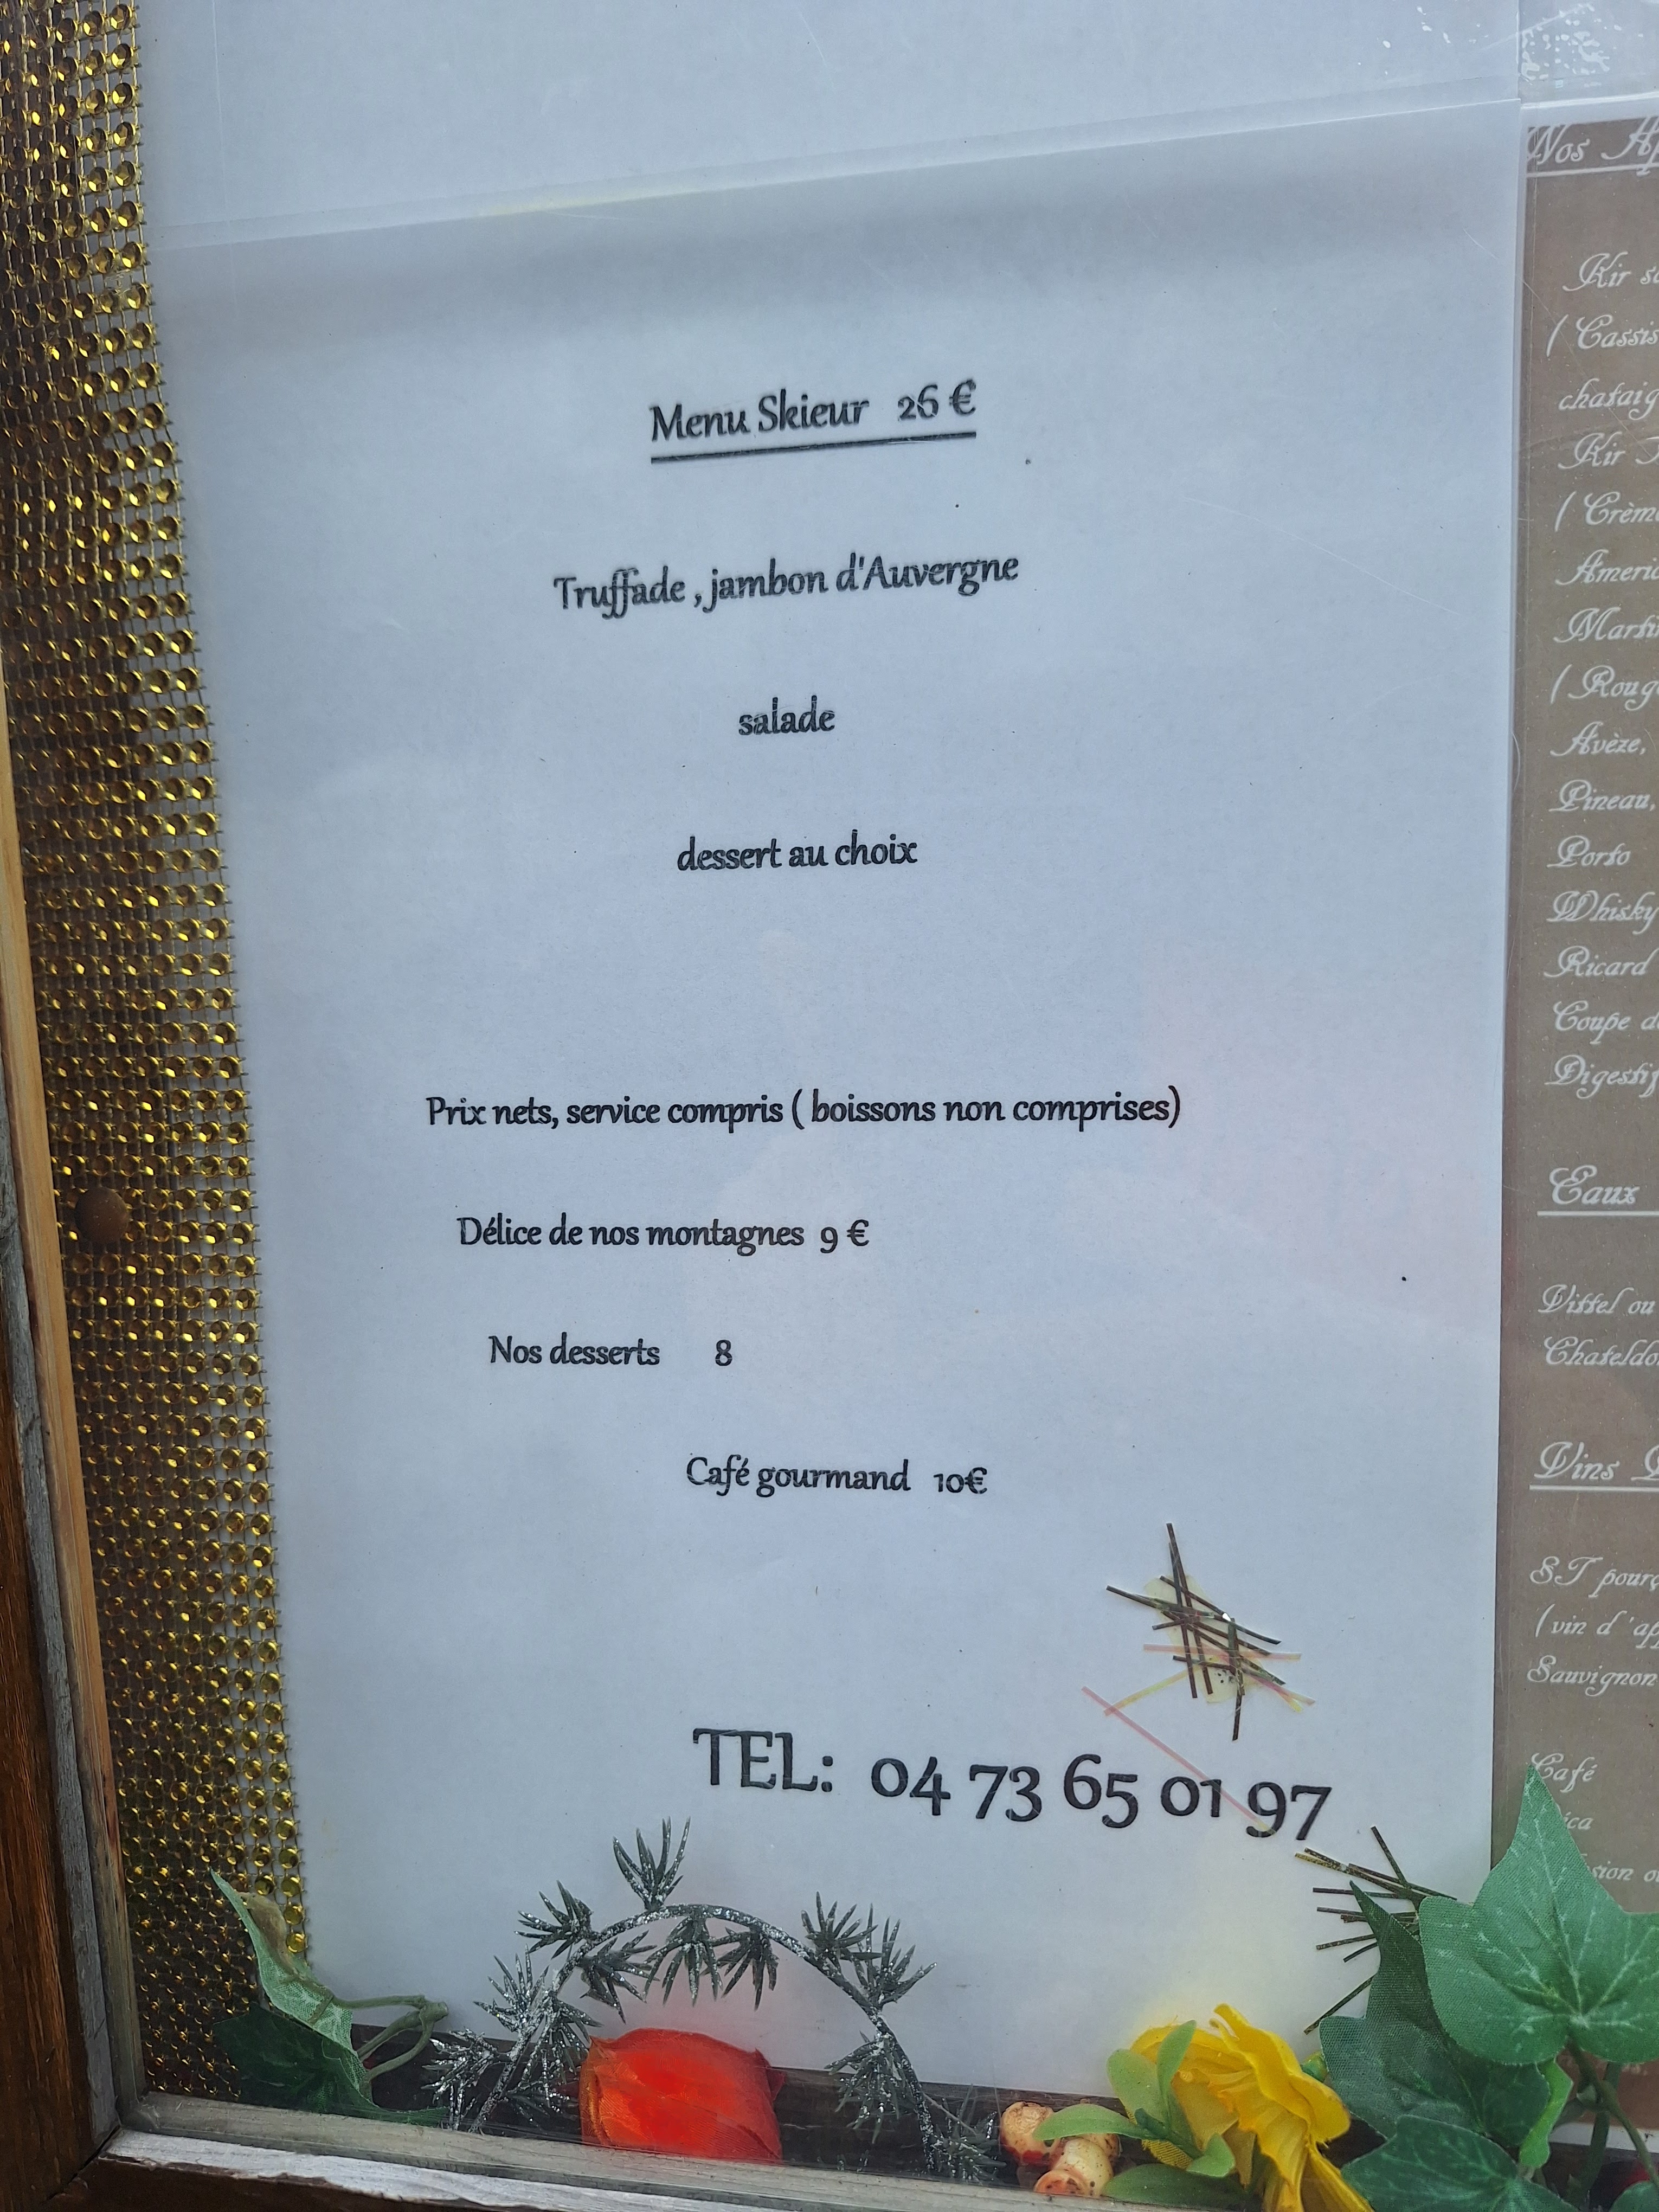 Menu Skieur 26 €
Truffade , jambon d'Auvergne
salade
dessert au choix
Prix nets, service compris ( boissons non comprises)
Délice de nos montagnes 9 €
Nos desserts 8
Café gourmand 10€
TEL: 04 73 65 01 97
Nos
Kir
( Cassis
Kir
(
Avèze,
Pineau,
Porto
Whisky
Ricard
Coupe
Eaux
Vittel ou
Vins
ST
( vin d'
Sauvignon
Café